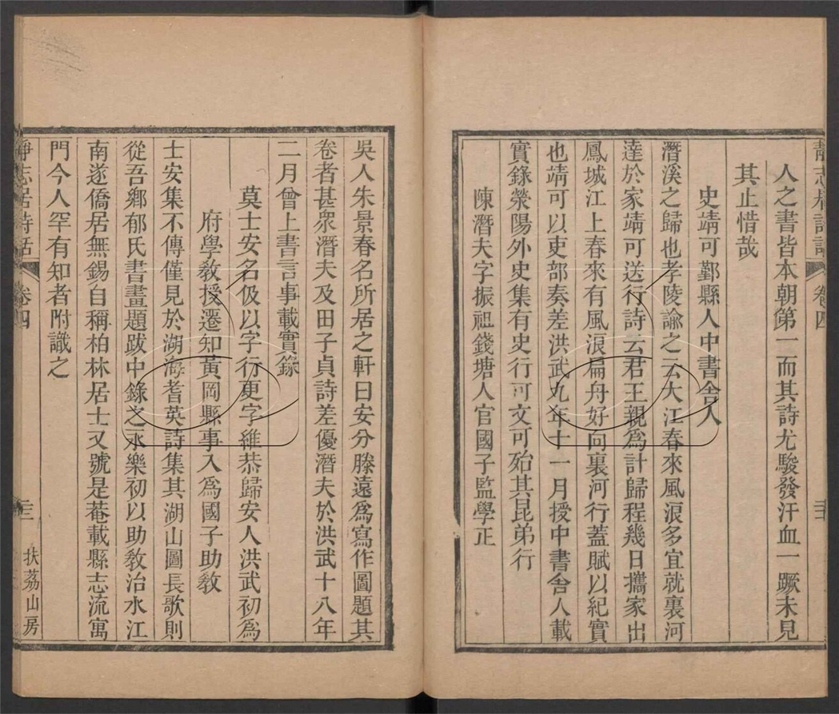 靜志居詩話
卷四
三
人之書皆本朝第一而其詩尤駿發汗血一蹶未見
其止惜哉
史靖可鄞縣人中書舍人
潛溪之歸也孝陵諭之云大江春來風浪多宜就裏河
達於家靖可送行詩云君王親爲計歸程幾日攜家出
鳳城江上春來有風浪扁舟好向裏河行蓋賦以紀實
也靖可以吏部奏差洪武九年十一月授中書舍人載
實錄滎陽外史集有史行可文可殆其昆弟行
陳潛夫字振祖錢塘人官國子監學正
吳人朱景春名所居之軒曰安分滕遠爲寫作圖題其
卷者甚衆潛夫及田子貞詩差優潛夫於洪武十八年
二月曾上書言事載實錄
莫士安名伋以字行更字維恭歸安人洪武初爲
府學教授遷知黃岡縣事入爲國子助教
士安集不傳僅見於湖海耆英詩集其湖山圖長歌則
從吾鄉郁氏書畫題跋中錄之永樂初以助教治水江
南遂僑居無錫自稱柏林居士又號是菴載縣志流寓
門今人罕有知者附識之
靜志居詩話
卷四
三
扶荔山房